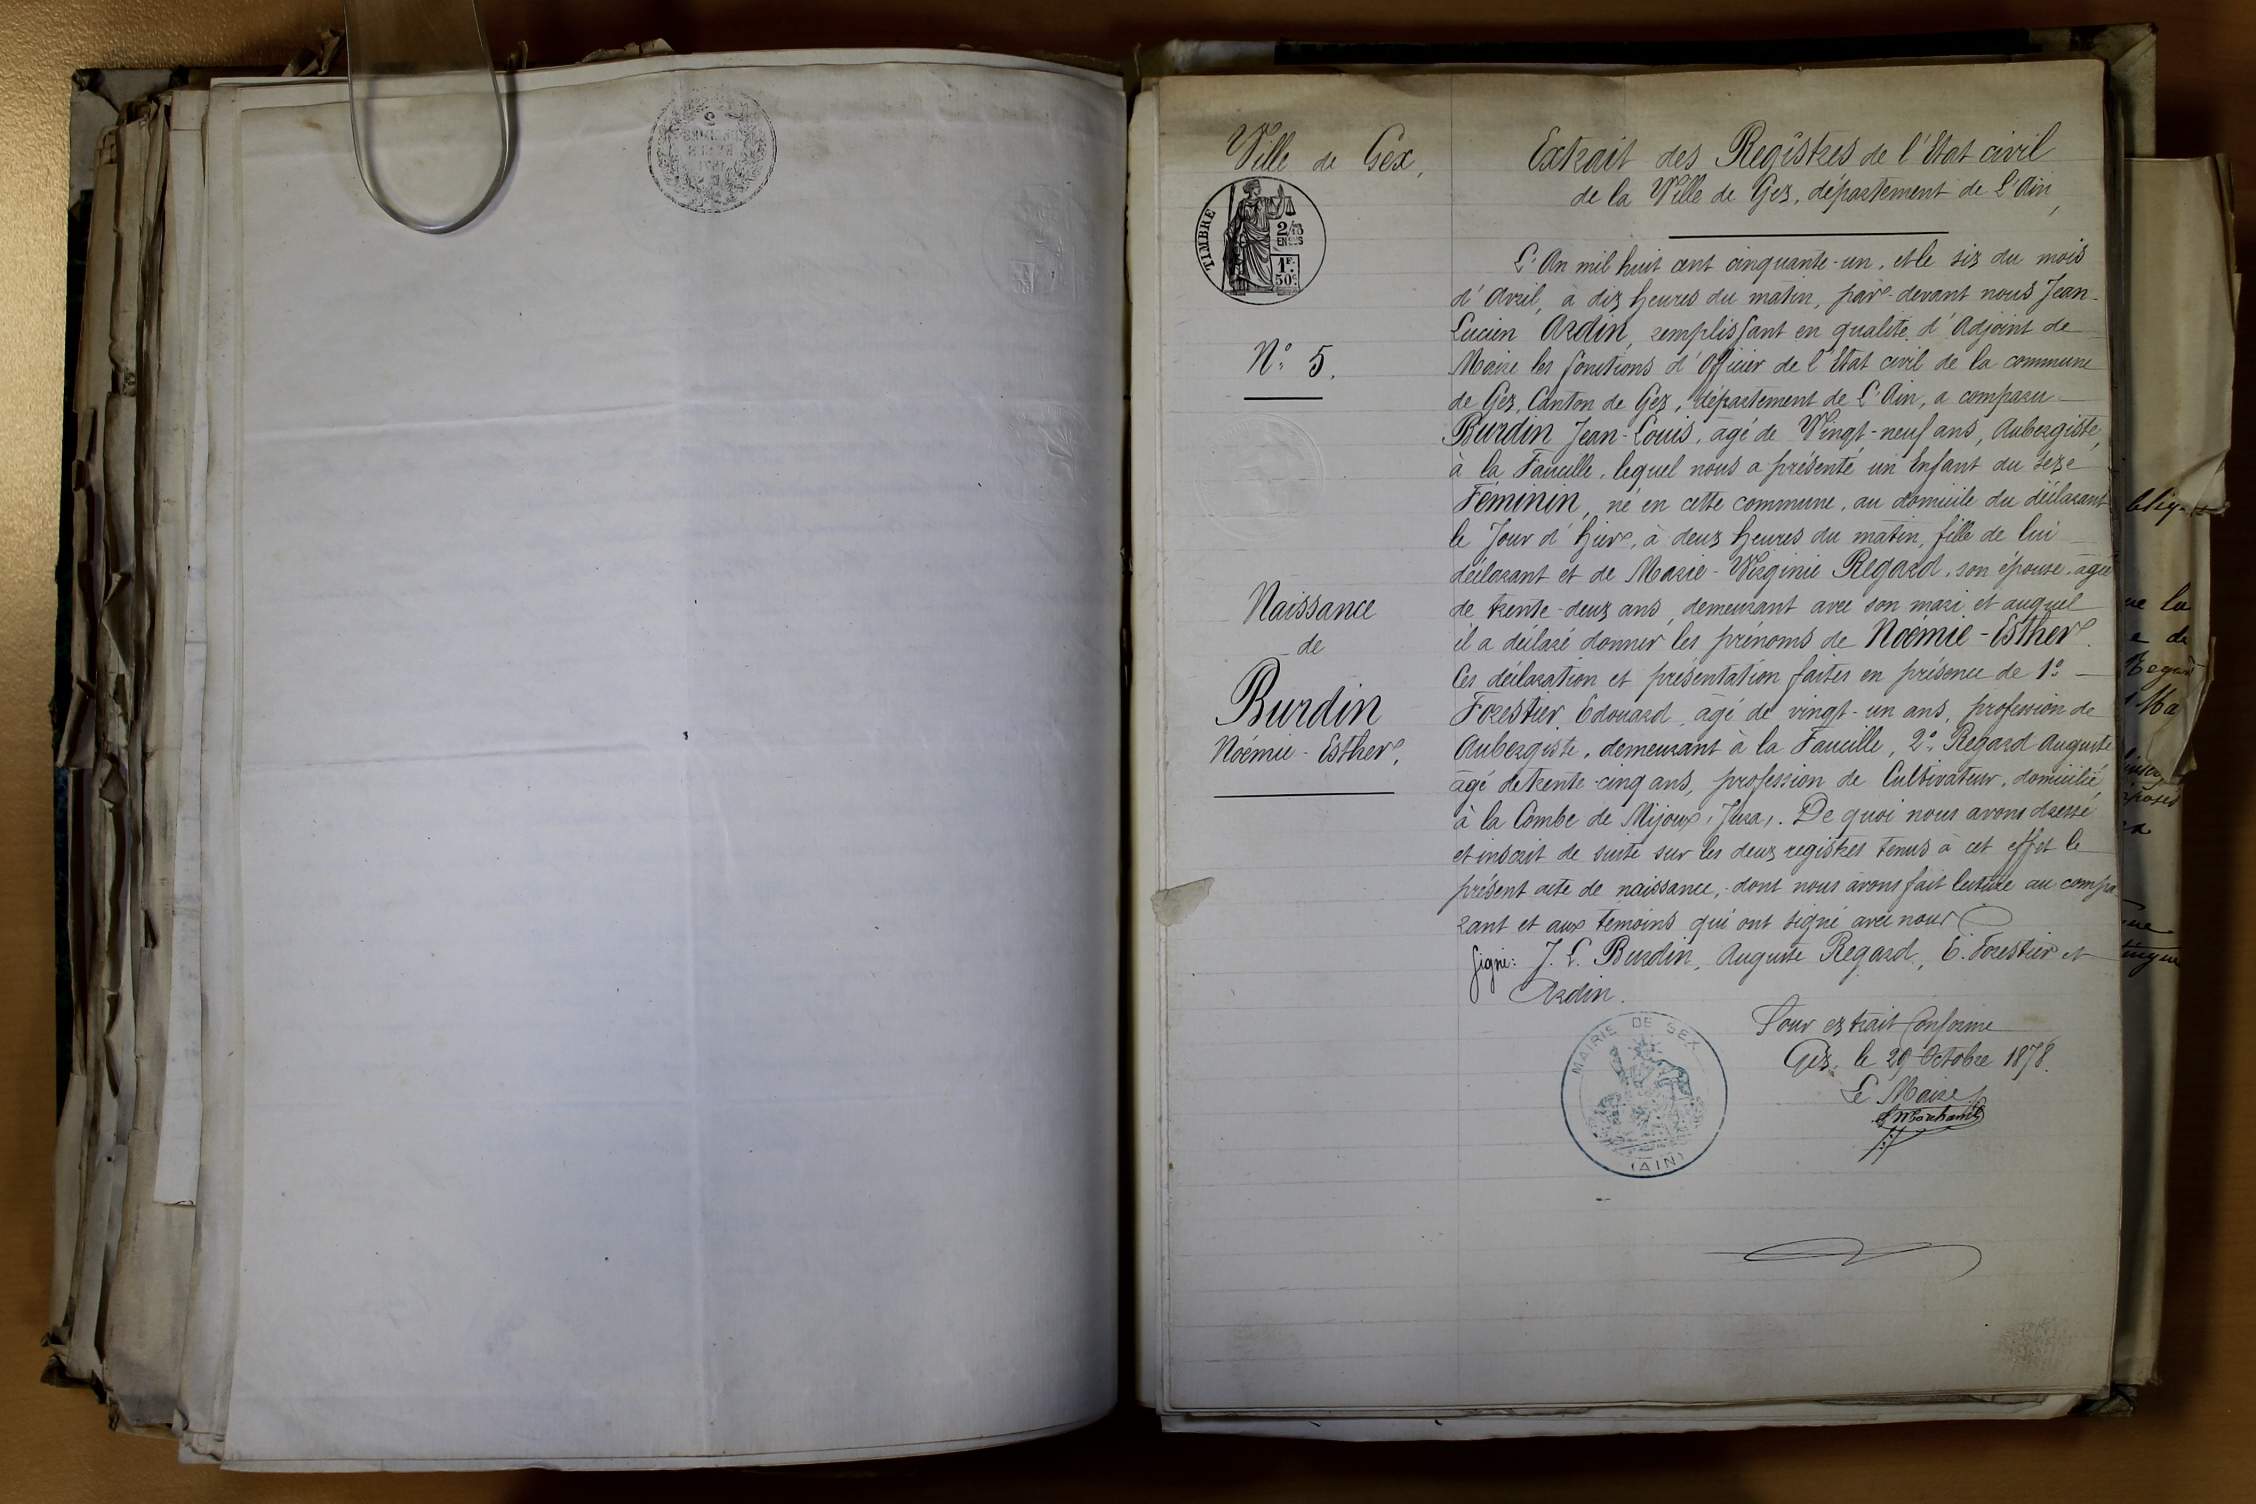 Ville de Gex,
TIMBRE
2/10
EN SUS
1F.
50c.
N° 5.
Naissance
de
Burdin
Noémie-Esther,
Extrait des Registres de l'Etat civil
de la Ville de Gex, département de l'Ain,
L'An mil huit cent cinquante-un, et le six du mois
d'Avril, à dix heures du matin, par-devant nous Jean-
Lucien Ardin, remplissant en qualité d'Adjoint de
Maire les fonctions d'Officier de l'Etat civil de la commune
de Gex, Canton de Gex, département de l'Ain, a comparu
Burdin Jean-Louis, âgé de Vingt-neuf ans, Aubergiste,
à la Faucille, lequel nous a présenté un Enfant du sexe
Féminin, né en cette commune, au domicile du déclarant
le Jour d'hier, à deux heures du matin, fille de lui
déclarant et de Marie-Virginie Regard, son épouse, âgée
de trente-deux ans, demeurant avec son mari et auquel
il a déclaré donner les prénoms de Noémie-Esther.
Ces déclaration et présentation faites en présence de 1°
Forestier Edouard, âgé de vingt-un ans, profession de
Aubergiste, demeurant à la Faucille, 2° Regard Auguste
âgé de trente-cinq ans, profession de Cultivateur, domicilié
à la Combe de Mijoux, Jura,. De quoi nous avons dressé
et inscrit de suite sur les deux registres tenus à cet effet le
présent acte de naissance, dont nous avons fait lecture au compa-
rant et aux témoins qui ont signé avec nous
Signé: J. L. Burdin, Auguste Regard, E. Forestier et
Ardin.
Pour extrait conforme
Gex, le 29 Octobre 1878.
Le Maire
MAIRIE DE GEX
(AIN)
ue la
e de
Regard